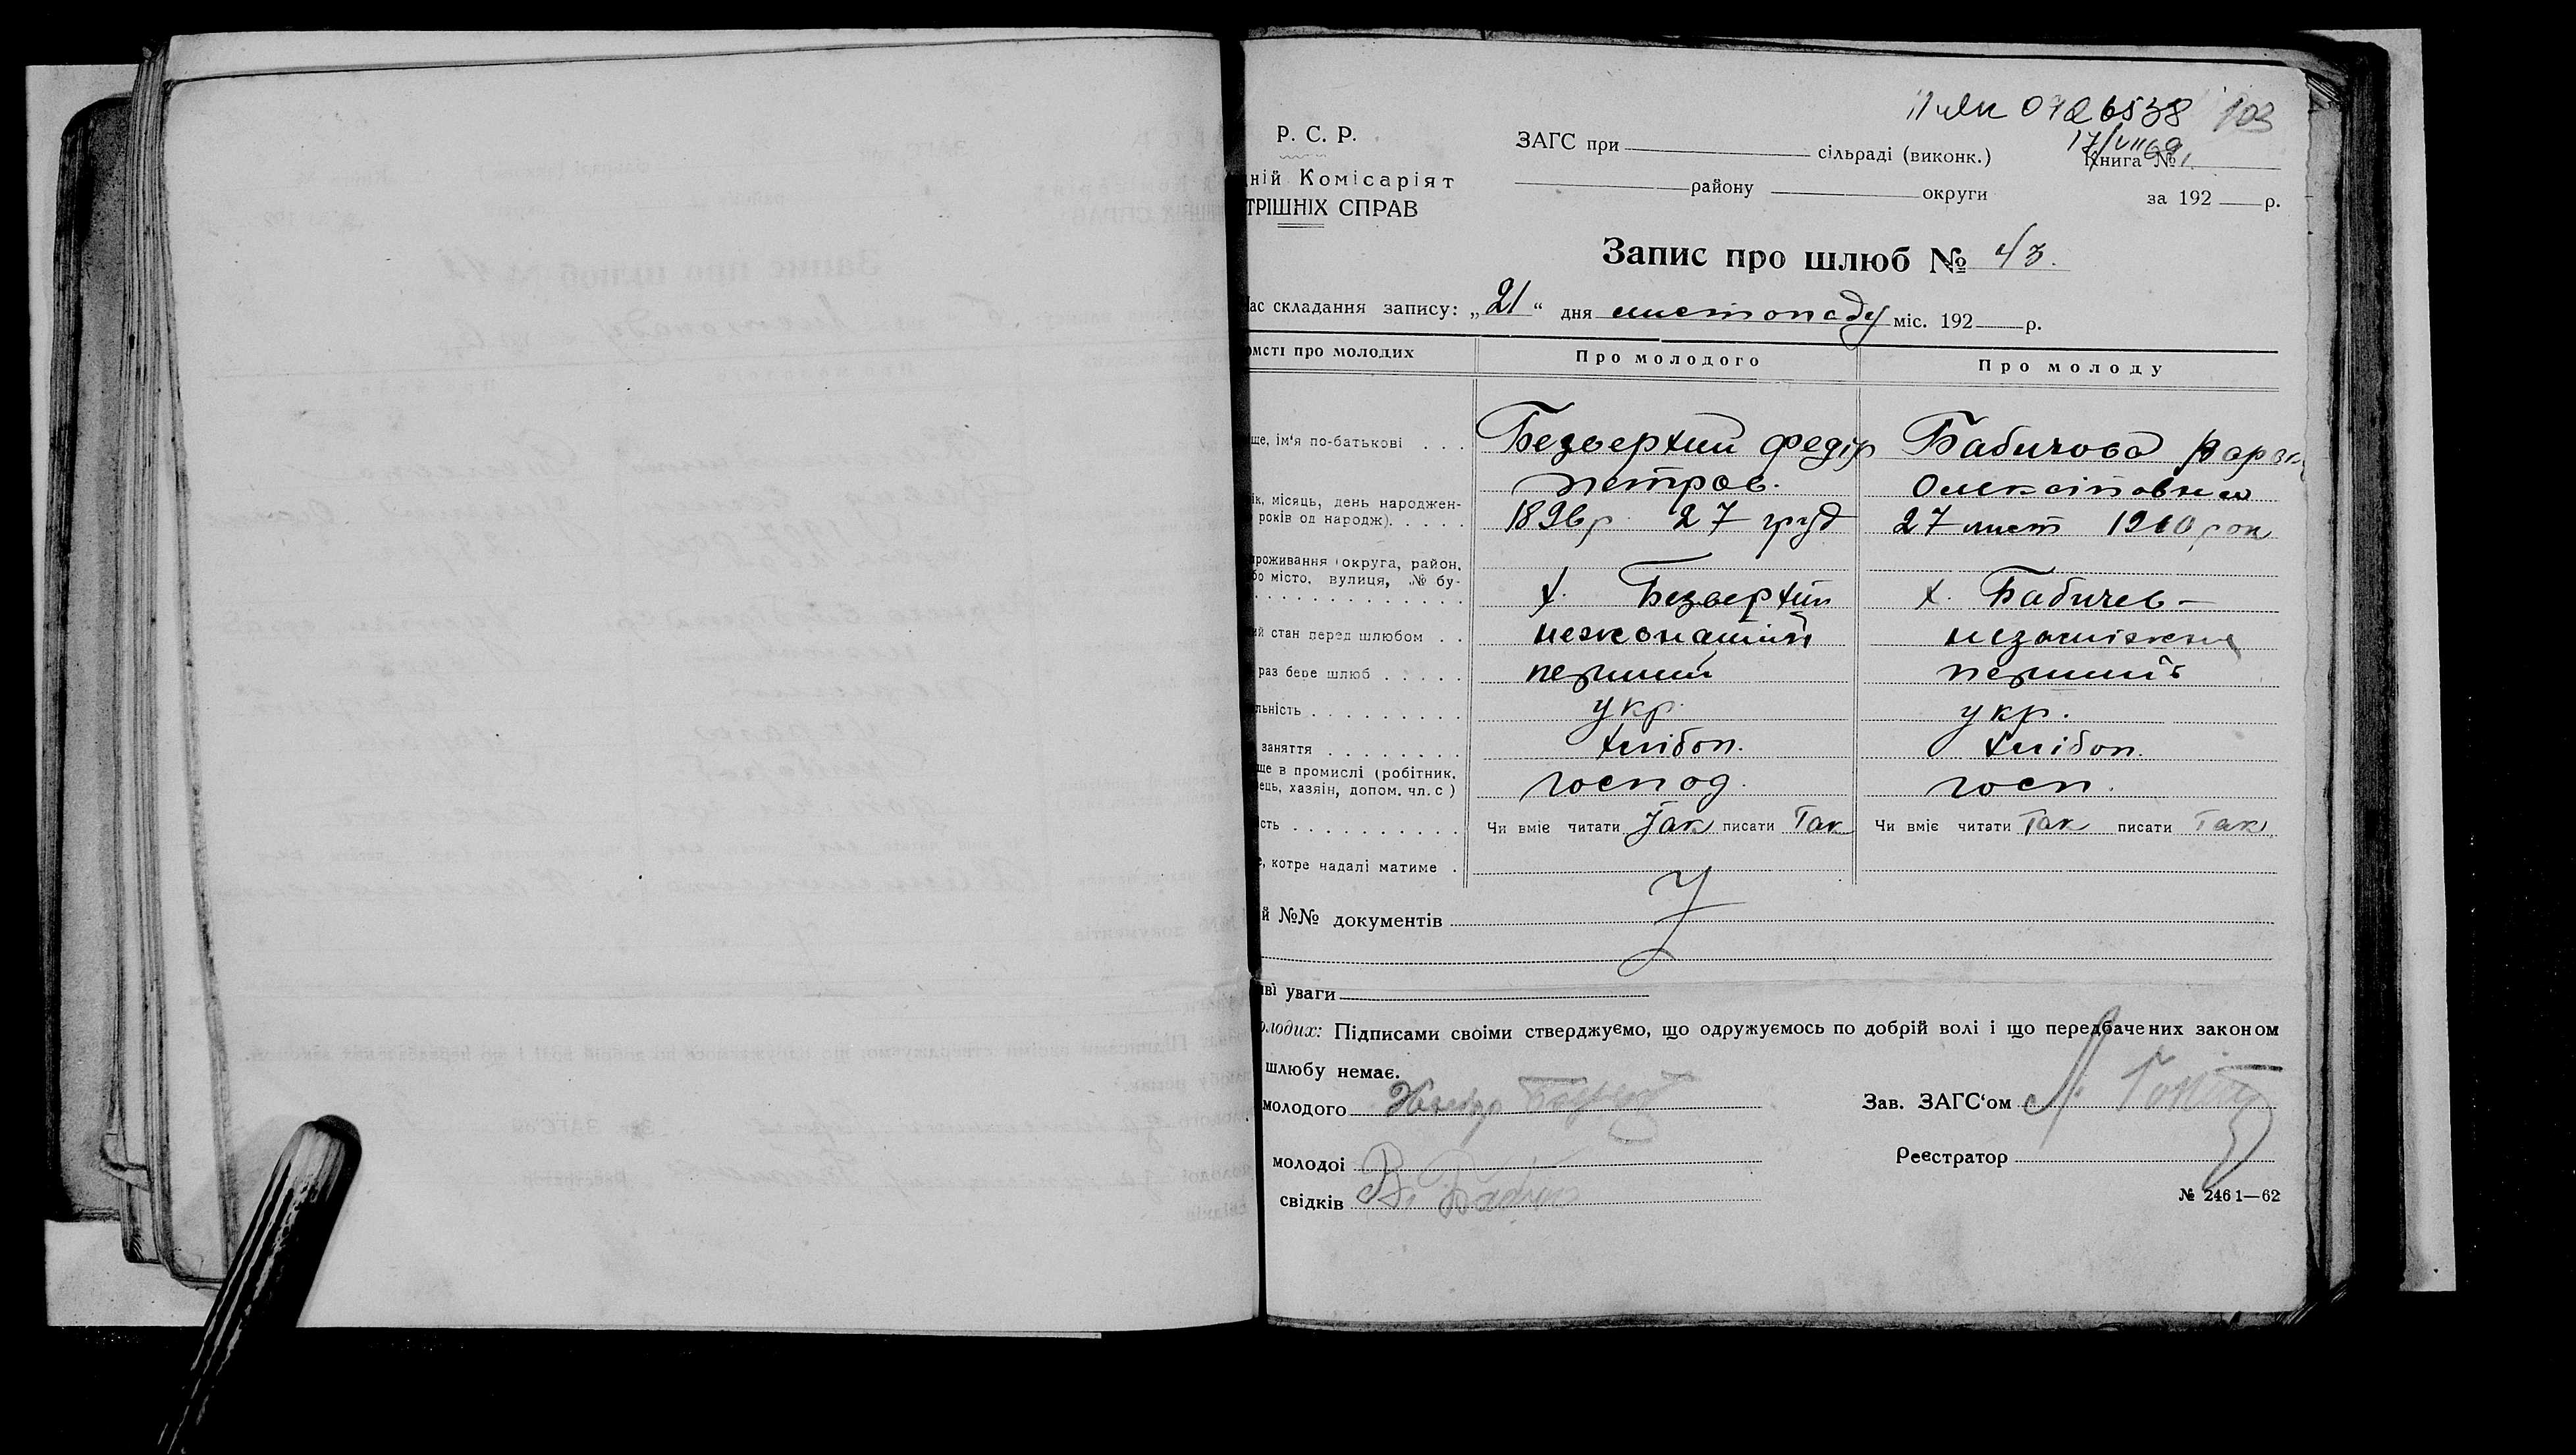 0726538 103
17/VII 69
Р. С. Р.
ЗАГС при сільраді (виконк.) Книга №
ній Комісаріят
району округи за 192 р.
ТРІШНІХ СПРАВ
Запис про шлюб № 43.
ас складання запису: „21“ дня листопаду міс. 192 р.
омсті про молодих Про молодого Про молоду
ще, ім'я по-батькові . . . Безверхий Федір Бабичова
Петров. Олексіївна
ік, місяць, день народжен-
років од народж). . . . . 1896р 27 груд 27 лист 1910 рок
проживання (округа, район,
бо місто, вулиця, № бу-
. . . . . . . . . . . . . х. Безверхий х. Бабичев—
ий стан перед шлюбом . . нежонатий незаміжня
раз бере шлюб . . . . . перший перший
льність . . . . . . . . . укр. укр.
заняття . . . . . . . . хлібоп. хлібоп.
ще в промислі (робітник,
ець, хазяін, допом. чл. с ) господ. госп.
ість . . . . . . . . . . Чи вміє читати Так писати Так Чи вміє читати Так писати Так
е, котре надалі матиме .
й №№ документів
иві уваги
олодих: Підписами своіми стверджуємо, що одружуємось по добрій волі і що передбачених законом
шлюбу немає.
молодого Зав. ЗАГС‘ом
молодоі Реєстратор
свідків
№ 2461—62